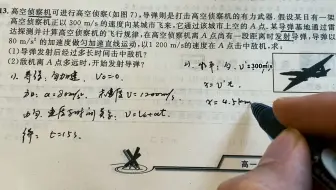 13.高空侦察机可进行高空侦察(如图7),导弹则是打击高空侦察机的有力武器.假设某日有一架
高空侦察机正以300 m/s的速度向某城市飞来,它通过该城市上空的A点.某导弹基地通过雷
达探测并计算高空侦察机的飞行规律,在高空侦察机离A点尚有一段距离时发射导弹,导弹以
80 m/s²的加速度做匀加速直线运动,以1 200 m/s的速度在A点击中敌机.求:
(1)导弹发射后经过多长时间击中敌机?
(2)敌机离A点多远时,开始发射导弹?
匀加速 V₀=0.
a=80m/s² 末速度 V=1200m/s
V=V₀+at
t=15s.
V=300m/s
x=vt
x=4.5km
高一